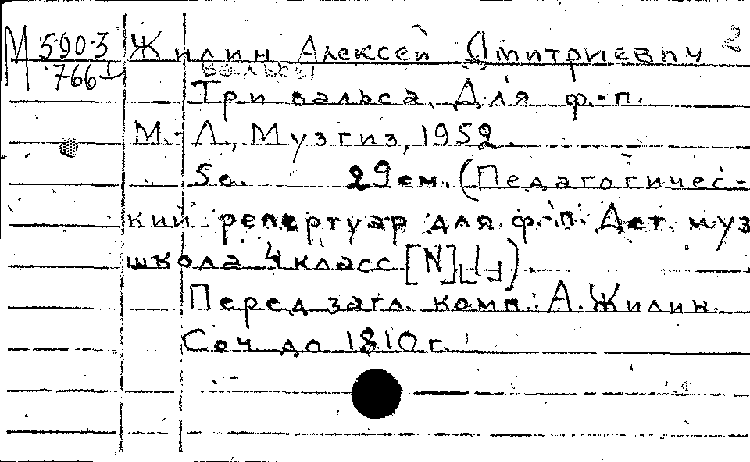 М 590-3 Жилин Алексей Дмитриевич 2
766 Вальсы
Три вальса. Для ф.-п.
М.-Л., Музгиз, 1952.
5с. 29 см. (Педагогичес-
кий репертуар для ф.-п. Дет. муз
школа 4 класс [N]
Перед загл. комп.: А. Жилин
Соч. до 1810 г.